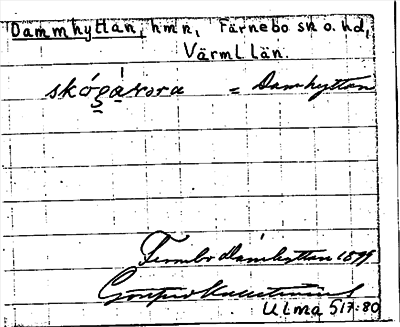 Dammhyttan, hmn, Färnebo sn o. hd,
Värml. län.
skógárora = Damhyttan
Fernebo Damhyttan 1899
Gottfrid Kallstenius
ULMA 517:80